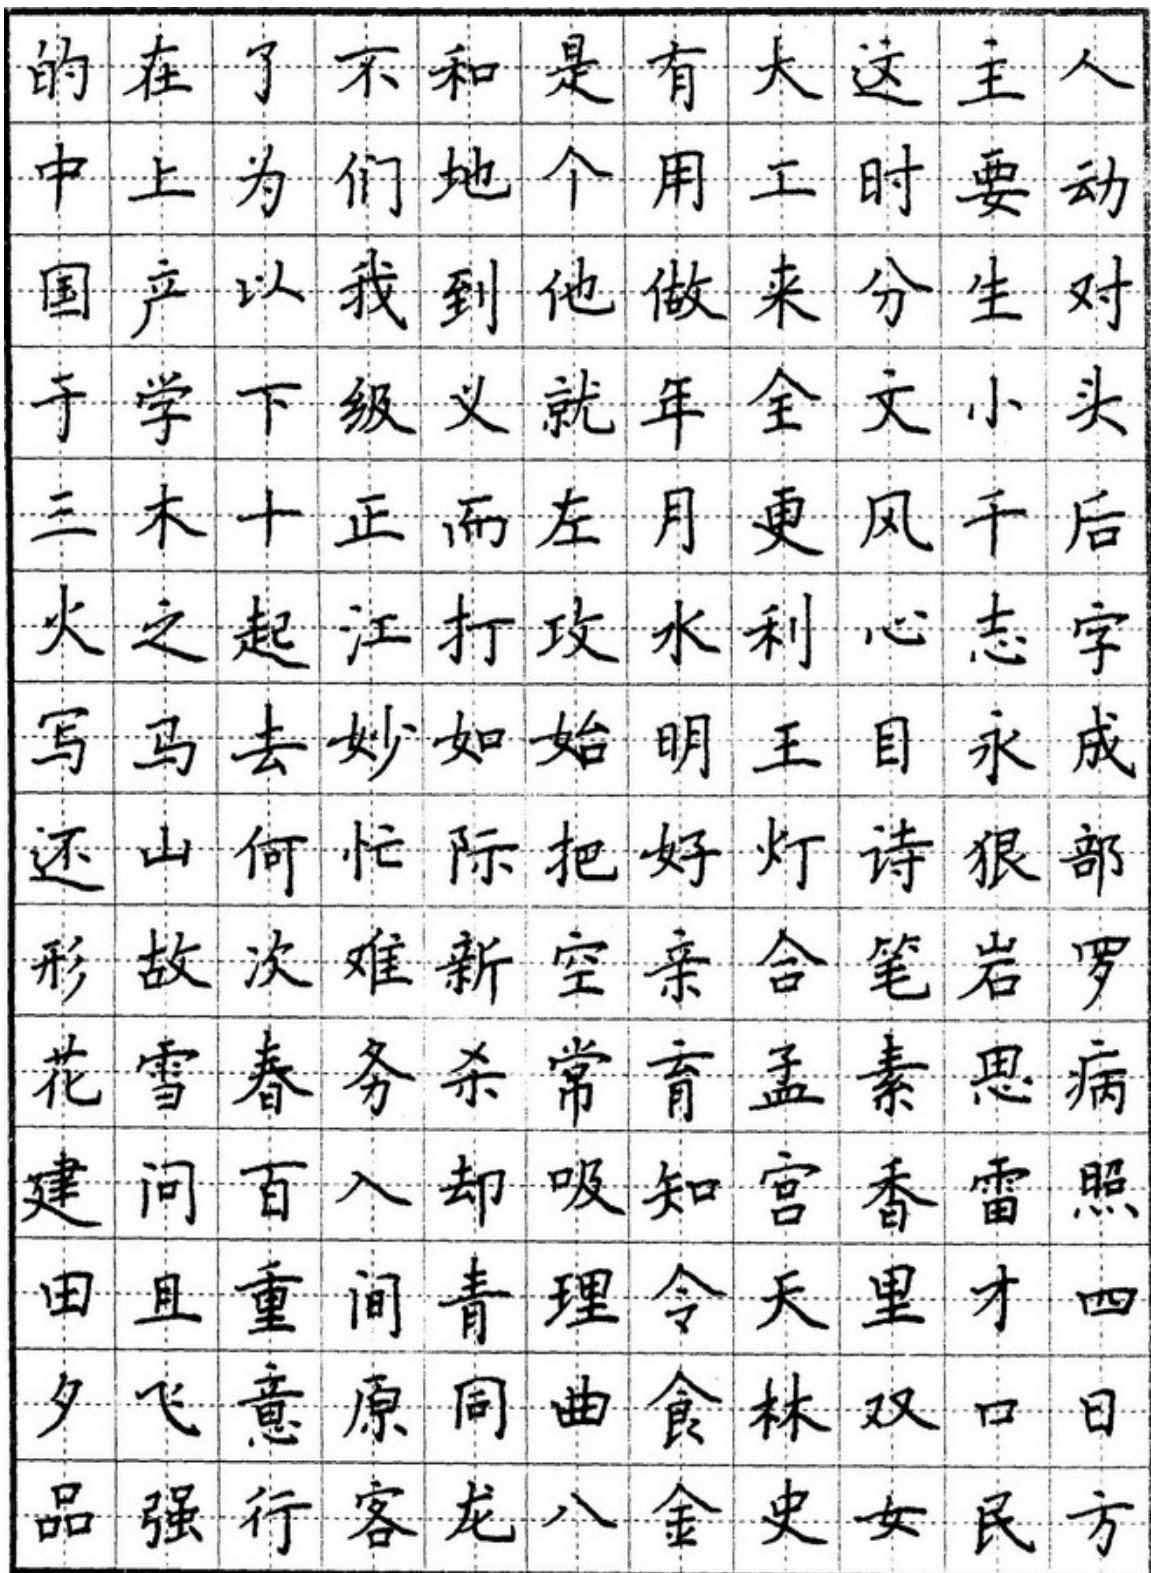 的在了不和是有大这主人
中上为们地个用工时要动
国产以我到他做来分生对
于学下级义就年全文小头
三木十正而左月更风千后
火之起江打攻水利心志字
写马去妙如始明王目永成
还山何忙际把好灯诗狠部
形故次难新空亲合笔岩罗
花雪春务杀常育孟素思病
建问百入却吸知宫香雷照
田且重间青理令天里才四
夕飞意原同曲食林双口日
品强行客龙八金史女民方